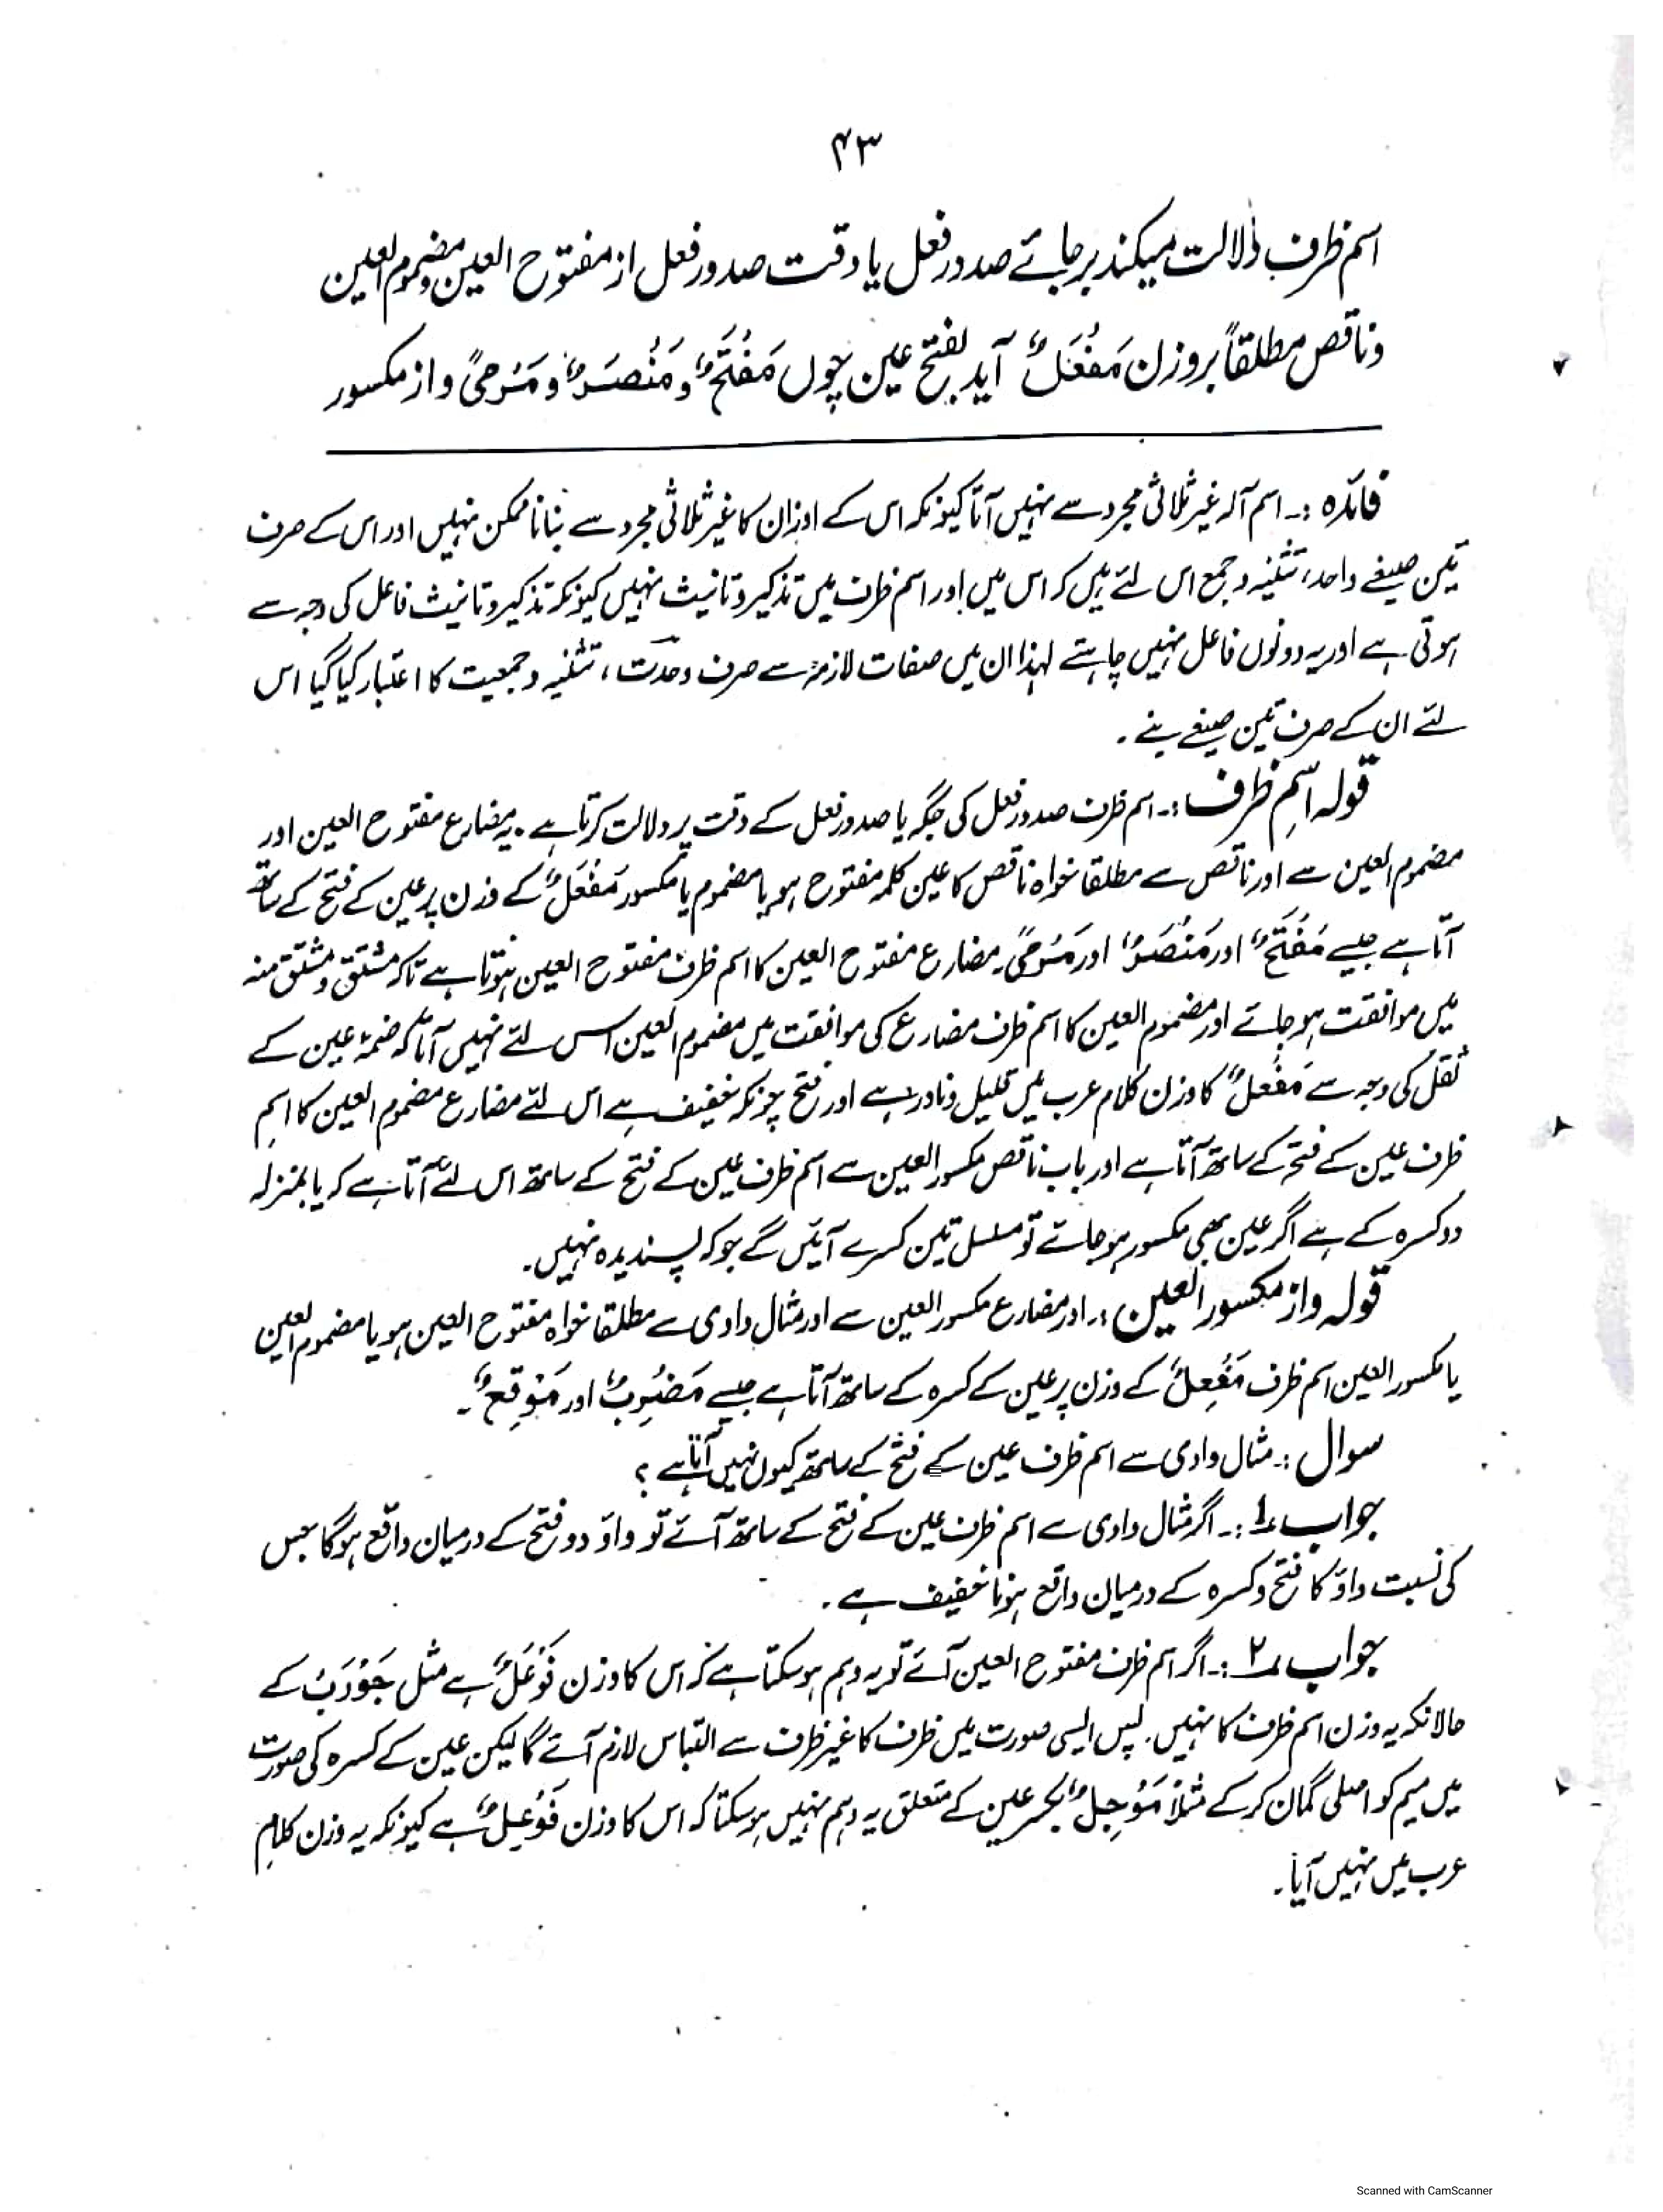 ۴۳
اسم ظرف دلالت میکند بر جائے صدور فعل یا وقت صدور فعل از مفتوح العین و مضموم العین
و ناقص مطلقاً بروزن مَفْعَلٌ آید بفتح عین چوں مَفْتَحٌ و مَنْصَرٌ و مَرْمیً و از مکسور
فائدہ :۔ اسم آلہ غیر ثلاثی مجرد سے نہیں آتا کیونکہ اس کے اوزان کا غیر ثلاثی مجرد سے بنانا ممکن نہیں اور اس کے صرف
تین صیغے واحد، تثنیہ و جمع اس لئے ہیں کہ اس میں اور اسم ظرف میں تذکیر و تانیث نہیں کیونکہ تذکیر و تانیث فاعل کی وجہ سے
ہوتی ہے اور یہ دونوں فاعل نہیں چاہتے لہذا ان میں صفات لازمہ سے صرف وحدت، تثنیہ و جمعیت کا اعتبار کیا گیا اس
لئے ان کے صرف تین صیغے بنے۔
قولہ اسمِ ظرف :۔ اسم ظرف صدور فعل کی جگہ یا صدور فعل کے وقت پر دلالت کرتا ہے۔ یہ مضارع مفتوح العین اور
مضموم العین سے اور ناقص سے مطلقا خواہ ناقص کا عین کلمہ مفتوح ہو یا مضموم یا مکسور مَفْعَلٌ کے وزن پر عین کے فتح کے ساتھ
آتا ہے جیسے مَفْتَحٌ اور مَنْصَرٌ اور مَرْمیً۔ مضارع مفتوح العین کا اسم ظرف مفتوح العین ہوتا ہے تاکہ مشتق و مشتق منہ
میں موافقت ہو جائے اور مضموم العین کا اسم ظرف مضارع کی موافقت میں مضموم العین اس لئے نہیں آتا کہ ضمۂ عین کے
ثقل کی وجہ سے مَفْعُلٌ کا وزن کلام عرب میں قلیل و نادر ہے اور فتح چونکہ خفیف ہے اس لئے مضارع مضموم العین کا اسمِ
ظرف عین کے فتحہ کے ساتھ آتا ہے اور باب ناقص مکسور العین سے اسم ظرف عین کے فتح کے ساتھ اس لئے آتا ہے کہ یا بمنزلہ
دو کسرہ کے ہے اگر عین بھی مکسور ہو جائے تو مسلسل تین کسرے آئیں گے جو کہ پسندیدہ نہیں۔
قولہ واز مکسور العین :۔ اور مضارع مکسور العین سے اور مثال وادی سے مطلقا خواہ مفتوح العین ہو یا مضموم العین
یا مکسور العین اسم ظرف مَفْعِلٌ کے وزن پر عین کے کسرہ کے ساتھ آتا ہے جیسے مَضْرِبٌ اور مَوْقِعٌ۔
سوال :۔ مثال وادی سے اسم ظرف عین کے فتح کے ساتھ کیوں نہیں آتا ہے ؟
جواب ۱ :۔ اگر مثال وادی سے اسم ظرف عین کے فتح کے ساتھ آئے تو واؤ دو فتح کے درمیان واقع ہوگا جس
کی نسبت واؤ کا فتح و کسرہ کے درمیان واقع ہونا خفیف ہے۔
جواب ۲ :۔ اگر اسم ظرف مفتوح العین آئے تو یہ وہم ہو سکتا ہے کہ اس کا وزن فَوْعَلٌ ہے مثل جَوْرَبٌ کے
حالانکہ یہ وزن اسم ظرف کا نہیں۔ پس ایسی صورت میں ظرف کا غیر ظرف سے التباس لازم آئے گا لیکن عین کے کسرہ کی صورت
میں میم کو اصلی گمان کر کے مثلاً مَوْجِلٌ بکسر عین کے متعلق یہ وہم نہیں ہو سکتا کہ اس کا وزن فَوْعِلٌ ہے کیونکہ یہ وزن کلامِ
عرب میں نہیں آیا۔
Scanned with CamScanner